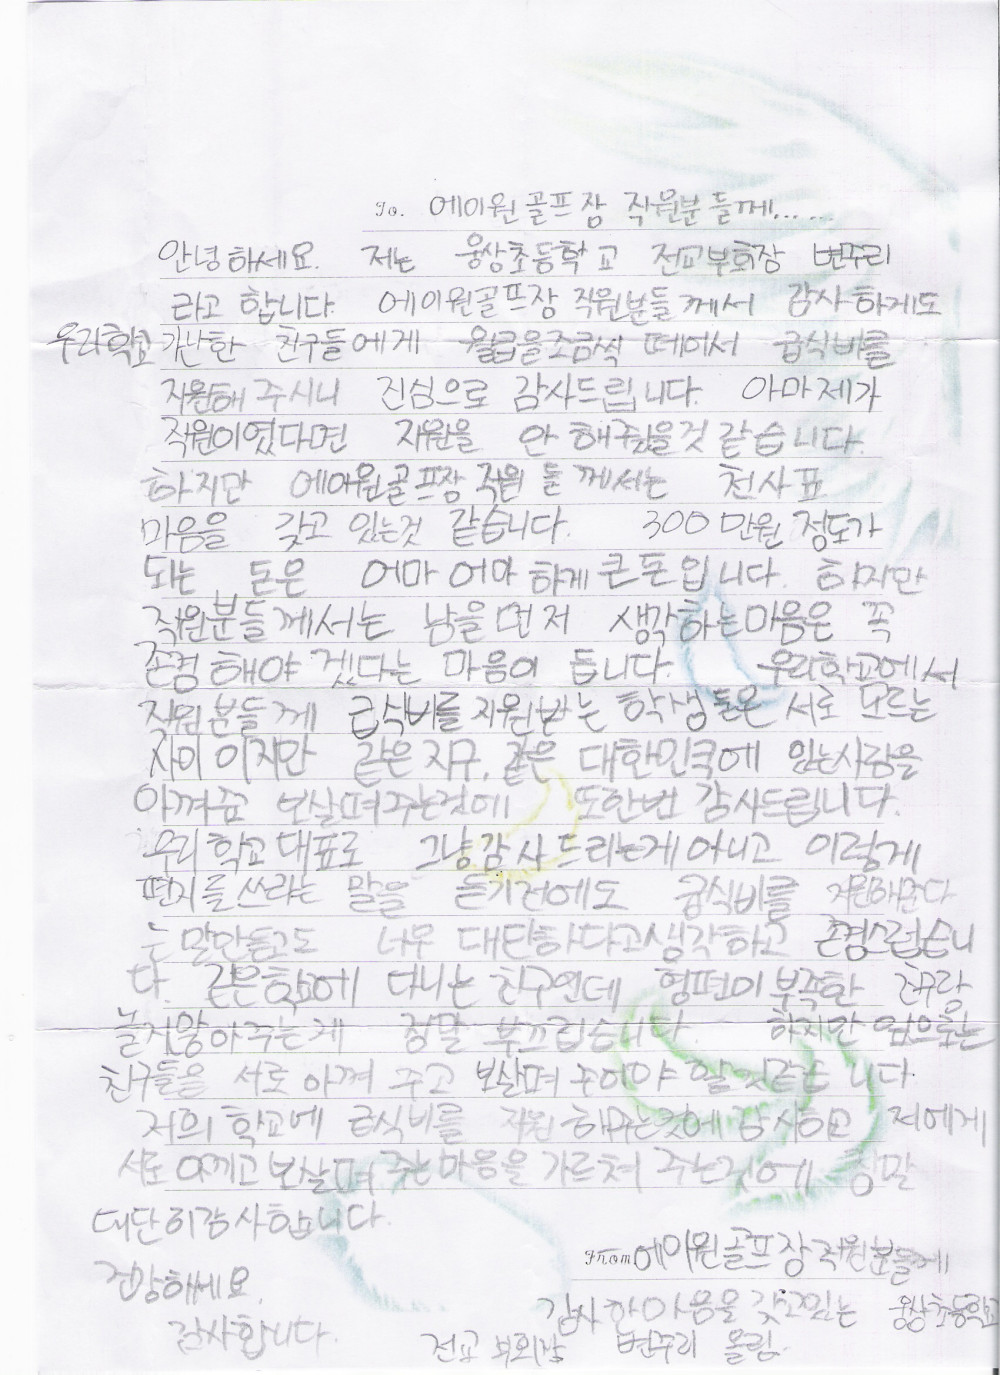 To. 에이원골프장 직원분들께......
안녕하세요. 저는 웅상초등학교 전교부회장 변주리
라고 합니다. 에이원골프장 직원분들께서 감사하게도
우리학교 가난한 친구들에게 월급을조금씩 떼어서 급식비를
지원해 주시니 진심으로 감사드립니다. 아마제가
직원이였다면 지원을 안 해줬을것 같습니다.
하지만 에이원골프장 직원 들께서는 천사표
마음을 갖고 있는것 같습니다. 300만원 정도가
되는 돈은 어마어마 하게 큰돈입니다. 하지만
직원분들께서는 남을먼저 생각하는마음은 꼭
존경해야 겠다는 마음이 듭니다. 우리학교에서
직원분들께 급식비를 지원받는 학생들은 서로 모르는
사이 이지만 같은지구, 같은 대한민국에 있는사람을
아껴줌 보살펴주는것에 또한번 감사드립니다.
우리학교대표로 그냥감사드리는게아니고 이렇게
편지를쓰라는 말을 듣기전에도 급식비를 지원해준다
는 말만듣고도 너무 대단하다고생각하고 존경스럽습니
다. 같은학교에 다니는 친구인데 형편이부족한 친구랑
놀지않아주는게 정말 부끄럽습니다. 하지만 앞으로는
친구들을 서로 아껴 주고 보살펴 주어야 할것같습니다.
저희학교에 급식비를 지원 해주는것에 감사하고 저에게
서로 아끼고 보살펴 주는마음을 가르쳐 주는것에 정말
대단히감사합니다.
건강하세요.
감사합니다.
From 에이원골프장직원분들께
감사한마음을 갖고있는 웅상초등학교
전교 부회장 변주리 올림.